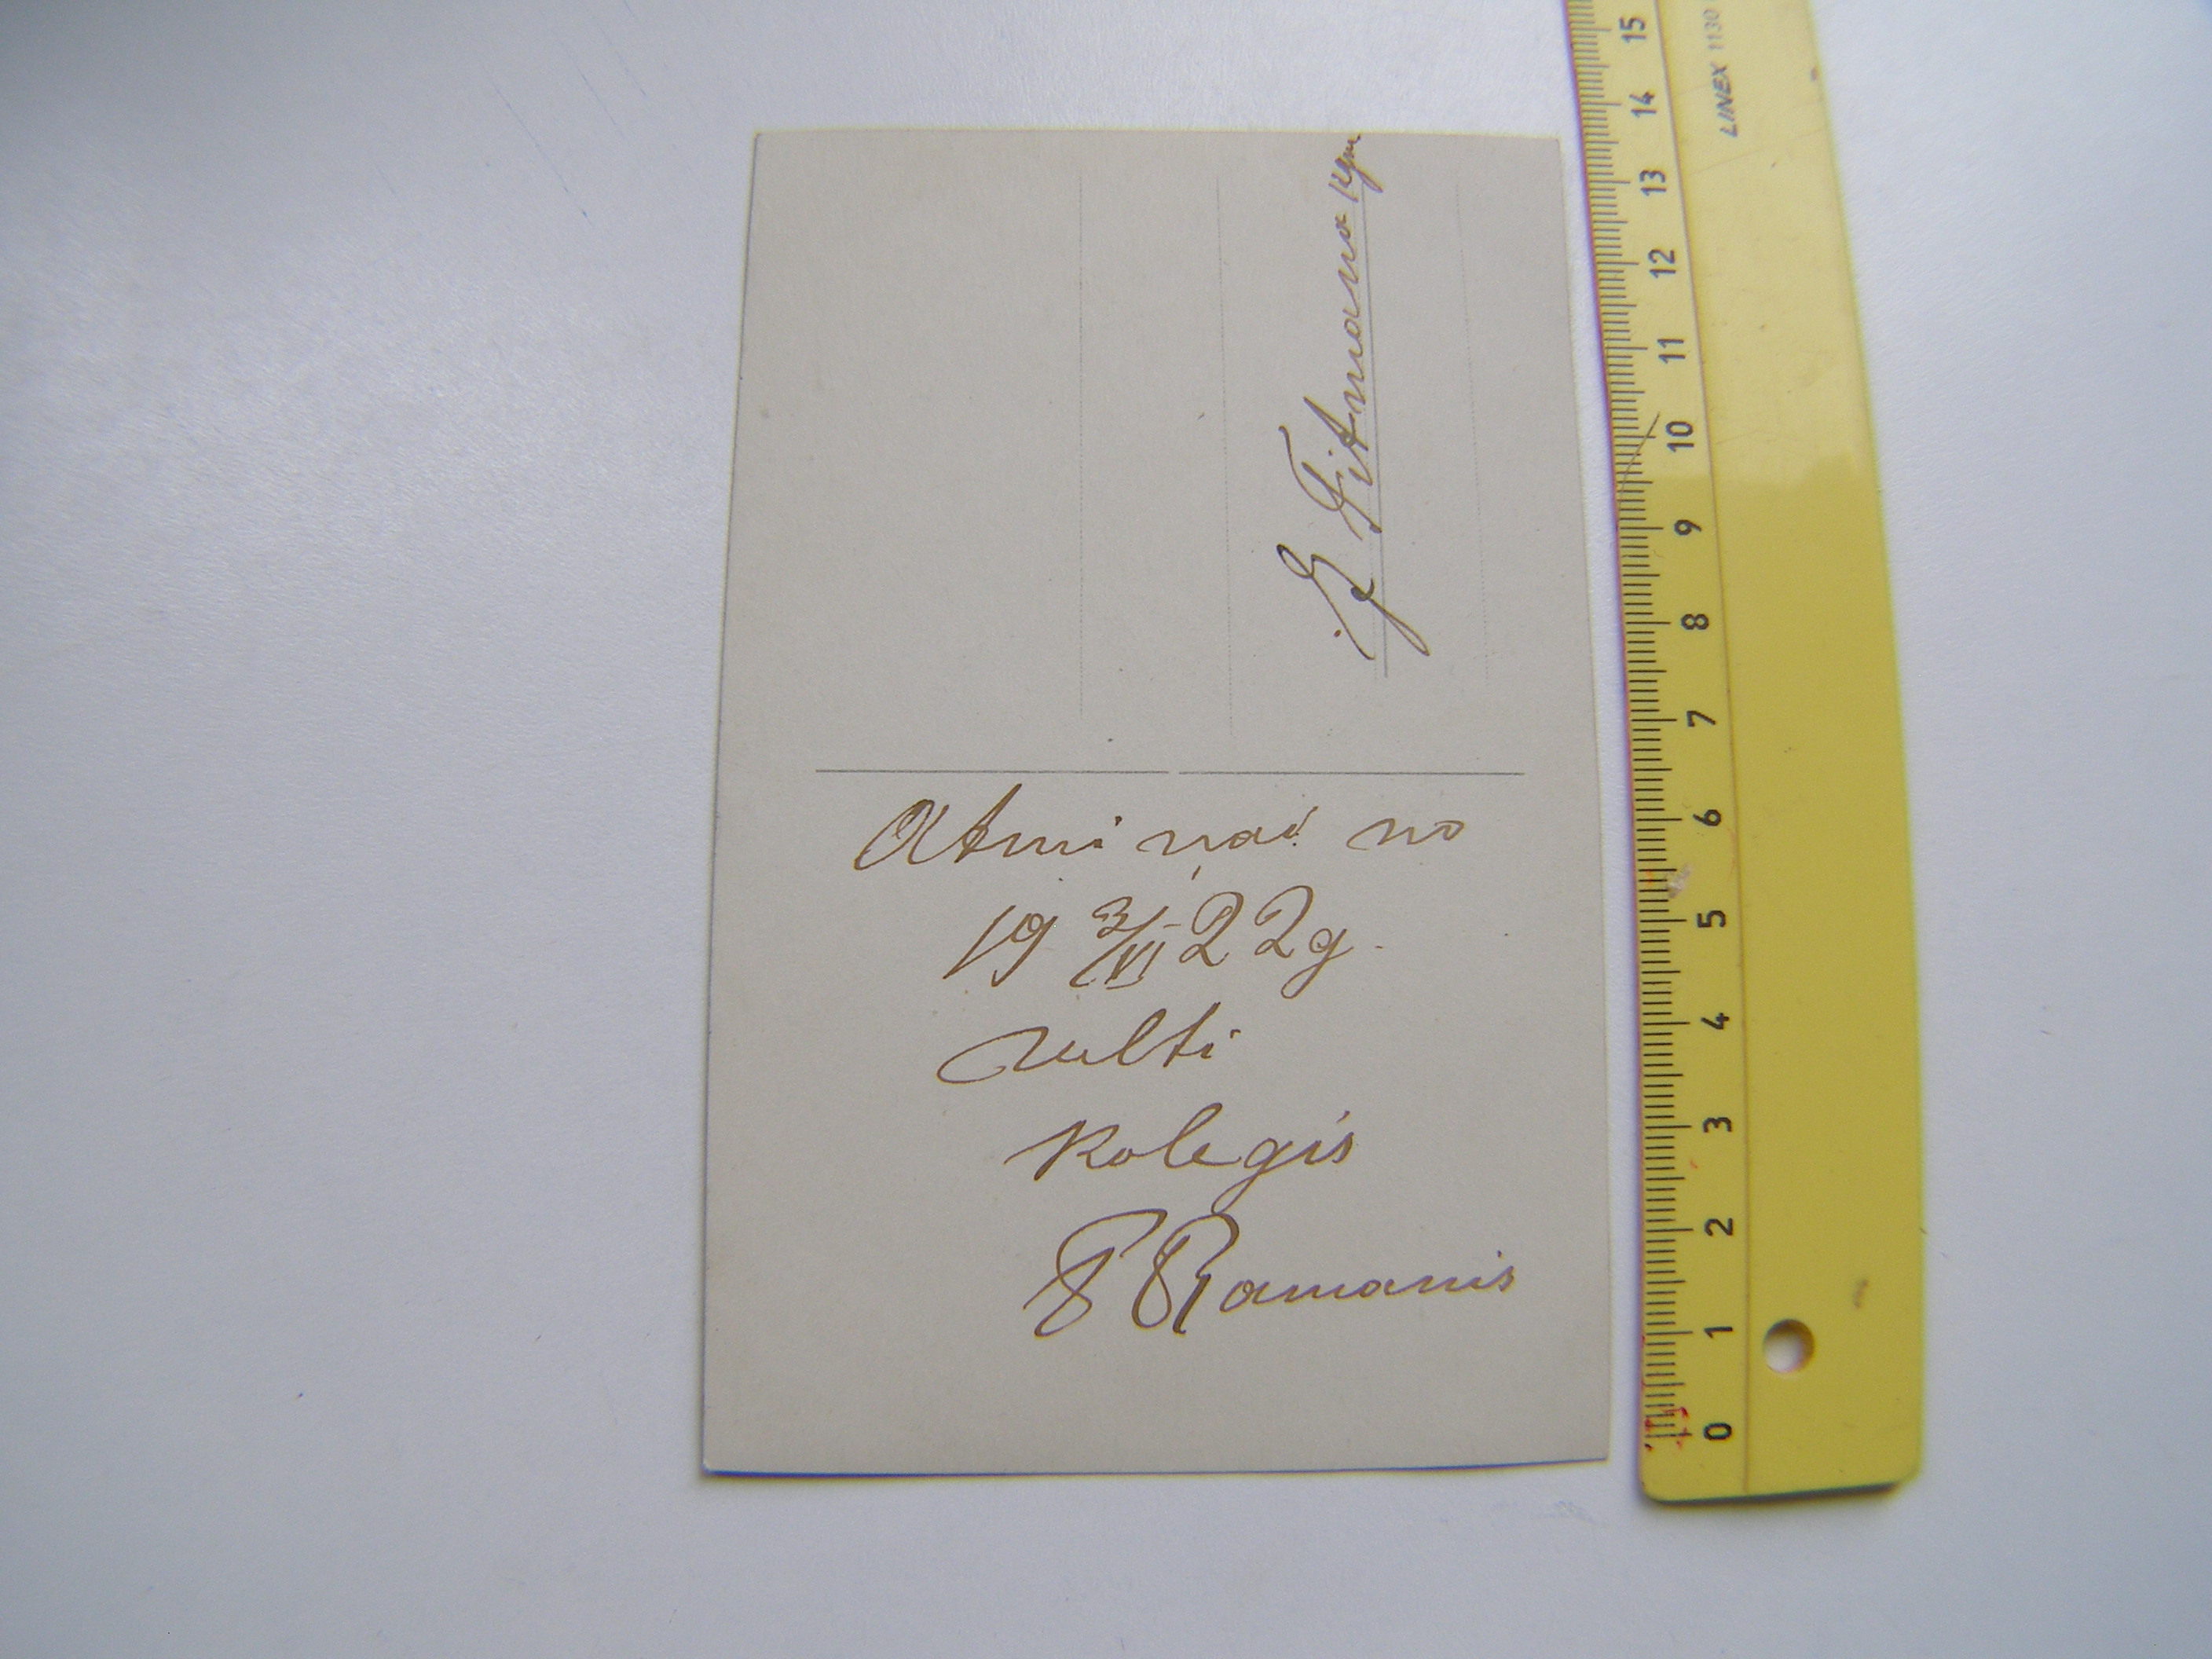 Atmiņai no
19 3/VI 22g.
velti
Kolegis
F Ramanis
J. Fitmana
LINEX 1130
15
14
13
12
11
10
9
8
7
6
5
4
3
2
1
0